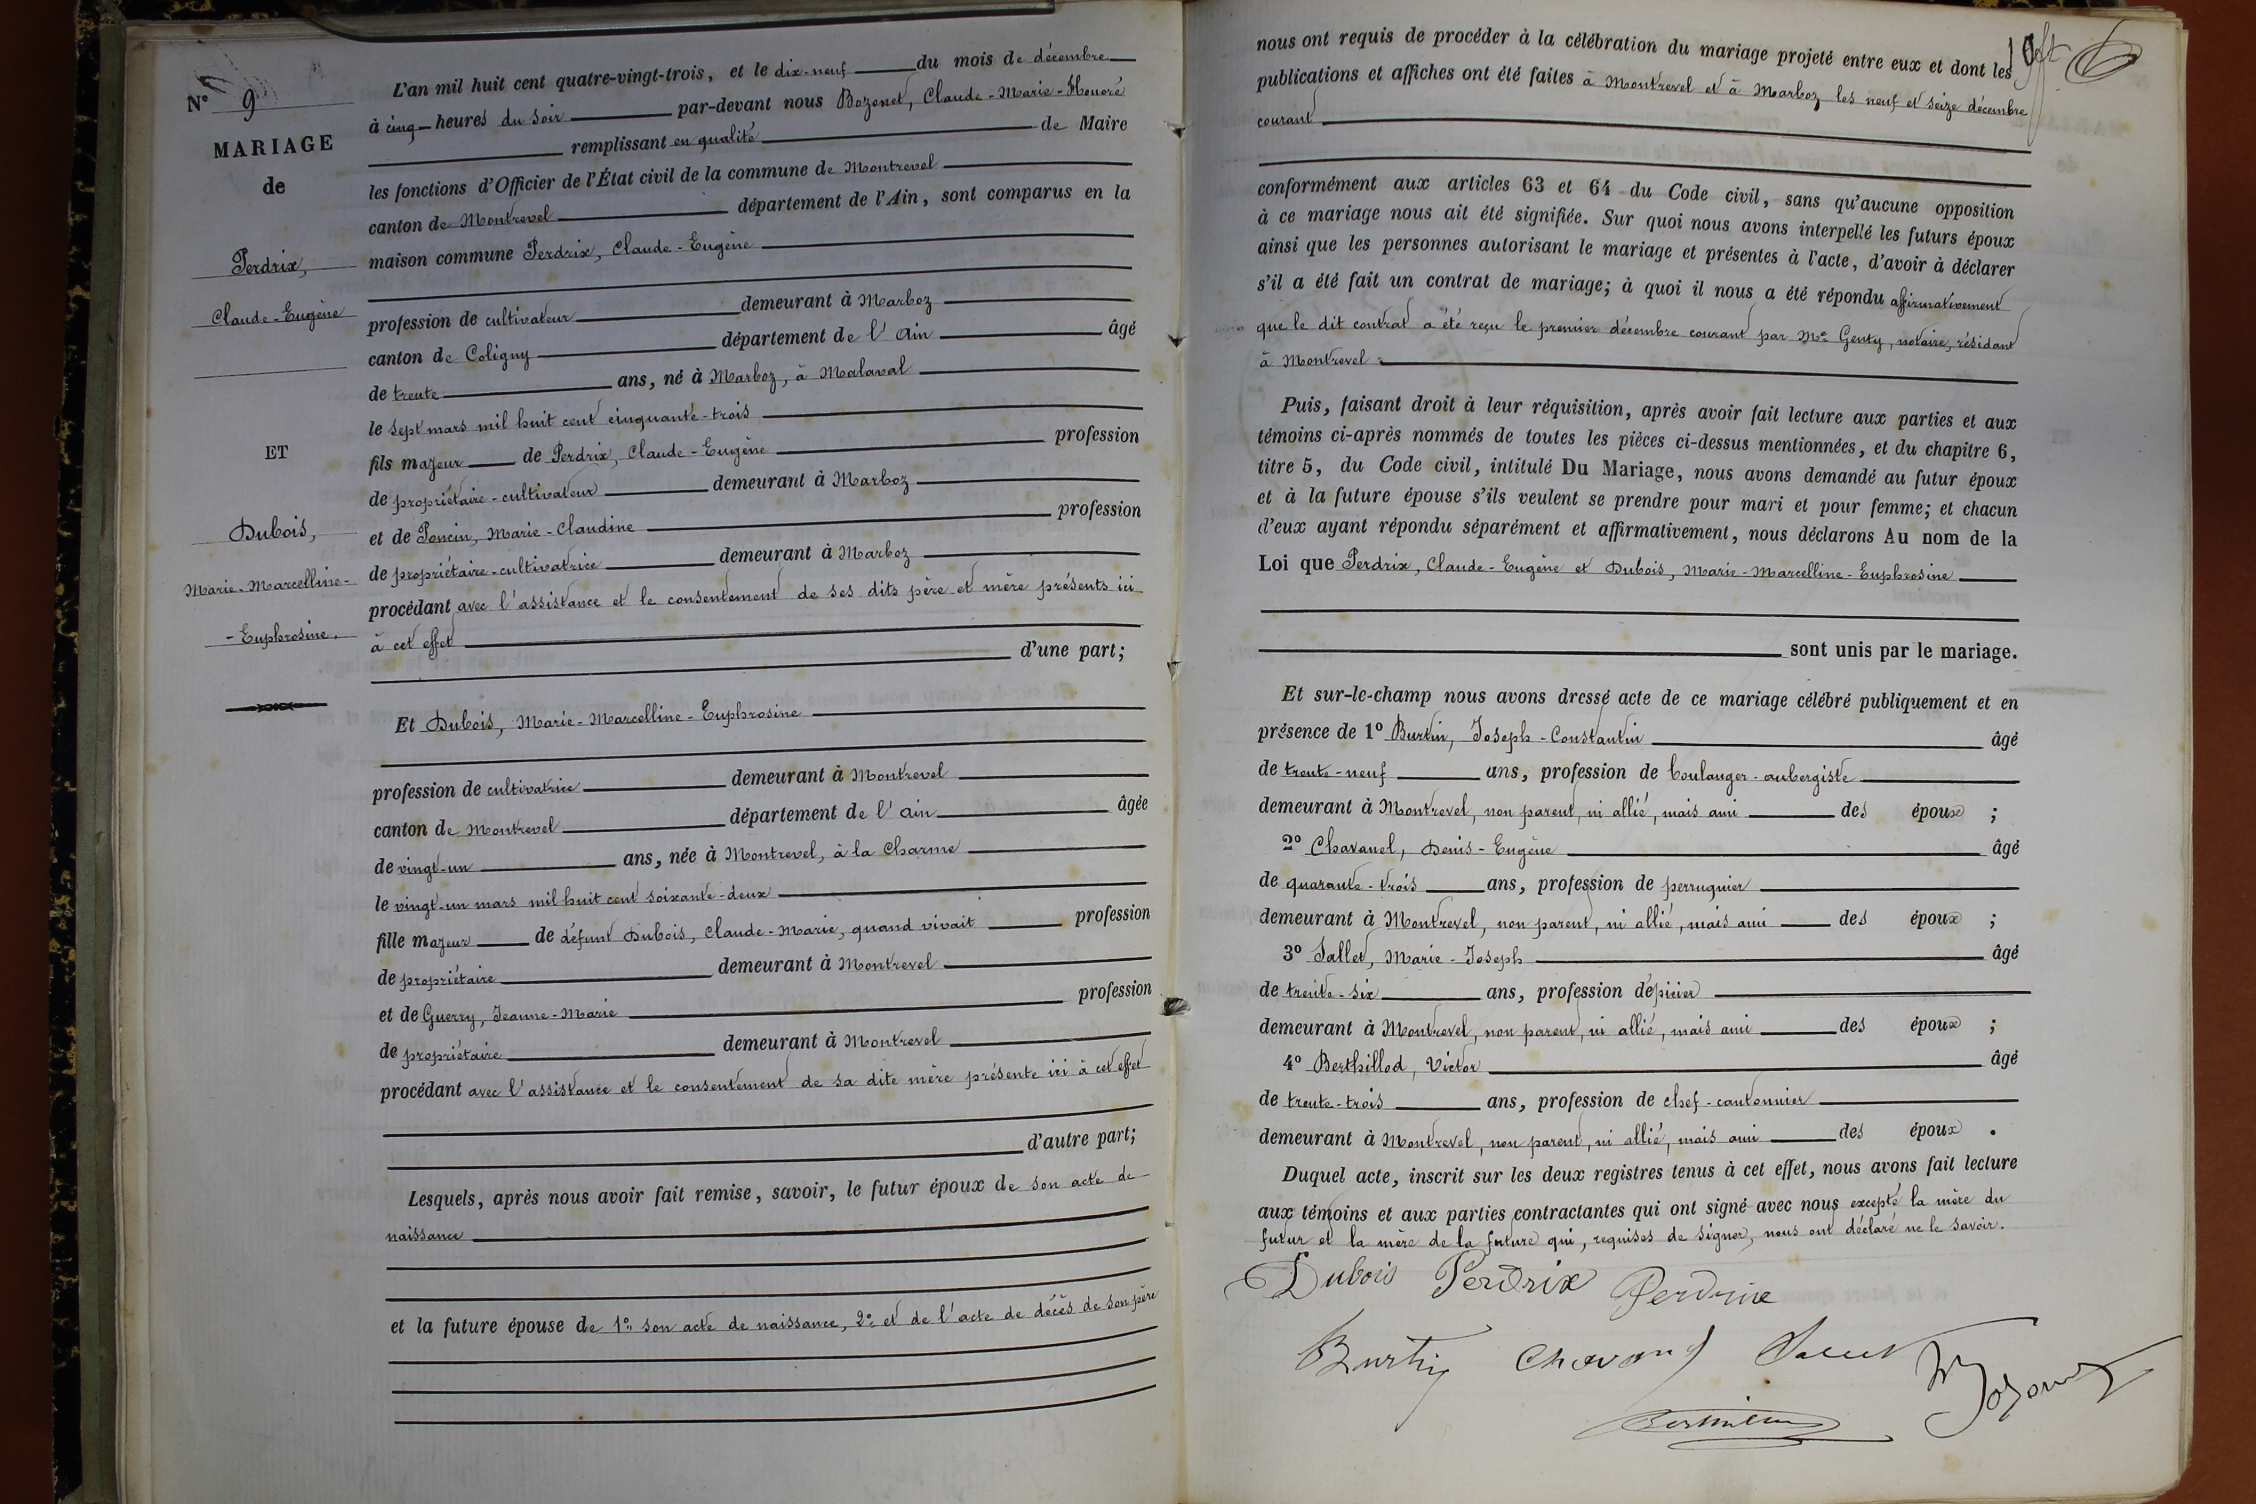 N° 9
MARIAGE
de
Perdrix,
Claude-Eugène
ET
Dubois,
Marie-Marcelline-
-Euphrosine.
L'an mil huit cent quatre-vingt-trois, et le dix-neuf du mois de décembre
à cinq heures du soir par-devant nous Bozonet, Claude-Marie-Honoré
remplissant en qualité de Maire
les fonctions d'Officier de l'État civil de la commune de Montrevel
canton de Montrevel département de l'Ain, sont comparus en la
maison commune Perdrix, Claude-Eugène
profession de cultivateur demeurant à Marboz
canton de Coligny département de l'Ain âgé
de trente ans, né à Marboz, à Malaval
le sept mars mil huit cent cinquante-trois
fils majeur de Perdrix, Claude-Eugène profession
de propriétaire-cultivateur demeurant à Marboz
et de Poncin, Marie-Claudine profession
de propriétaire-cultivatrice demeurant à Marboz
procédant avec l'assistance et le consentement de ses dits père et mère présents ici
à cet effet
d'une part;
Et Dubois, Marie-Marcelline-Euphrosine
profession de cultivatrice demeurant à Montrevel
canton de Montrevel département de l'Ain âgée
de vingt-un ans, née à Montrevel, à la Charme
le vingt-un mars mil huit cent soixante-deux
fille majeur de défunt Dubois, Claude-Marie, quand vivait profession
de propriétaire demeurant à Montrevel
et de Guerry, Jeanne-Marie profession
de propriétaire demeurant à Montrevel
procédant avec l'assistance et le consentement de sa dite mère présente ici à cet effet
d'autre part;
Lesquels, après nous avoir fait remise, savoir, le futur époux de son acte de
naissance
et la future épouse de 1° son acte de naissance, 2° et de l'acte de décès de son père
nous ont requis de procéder à la célébration du mariage projeté entre eux et dont les
publications et affiches ont été faites à Montrevel et à Marboz les neuf et seize décembre
courant
conformément aux articles 63 et 64 du Code civil, sans qu'aucune opposition
à ce mariage nous ait été signifiée. Sur quoi nous avons interpellé les futurs époux
ainsi que les personnes autorisant le mariage et présentes à l'acte, d'avoir à déclarer
s'il a été fait un contrat de mariage; à quoi il nous a été répondu affirmativement
que le dit contrat a été reçu le premier décembre courant par Me Genty, notaire, résidant
à Montrevel
Puis, faisant droit à leur réquisition, après avoir fait lecture aux parties et aux
témoins ci-après nommés de toutes les pièces ci-dessus mentionnées, et du chapitre 6,
titre 5, du Code civil, intitulé Du Mariage, nous avons demandé au futur époux
et à la future épouse s'ils veulent se prendre pour mari et pour femme; et chacun
d'eux ayant répondu séparément et affirmativement, nous déclarons Au nom de la
Loi que Perdrix, Claude-Eugène et Dubois, Marie-Marcelline-Euphrosine
sont unis par le mariage.
Et sur-le-champ nous avons dressé acte de ce mariage célébré publiquement et en
présence de 1° Burtin, Joseph-Constantin âgé
de trente-neuf ans, profession de boulanger-aubergiste
demeurant à Montrevel, non parent, ni allié, mais ami des époux ;
2° Chavanel, Denis-Eugène âgé
de quarante-trois ans, profession de perruquier
demeurant à Montrevel, non parent, ni allié, mais ami des époux ;
3° Sallet, Marie-Joseph âgé
de trente-six ans, profession d'épicier
demeurant à Montrevel, non parent, ni allié, mais ami des époux ;
4° Berthillod, Victor âgé
de trente-trois ans, profession de chef-cantonnier
demeurant à Montrevel, non parent, ni allié, mais ami des époux .
Duquel acte, inscrit sur les deux registres tenus à cet effet, nous avons fait lecture
aux témoins et aux parties contractantes qui ont signé avec nous excepté la mère du
futur et la mère de la future qui, requises de signer, nous ont déclaré ne le savoir.
Dubois Perdrix Perdrix
Burtin Chavanel Sallet Bozonet